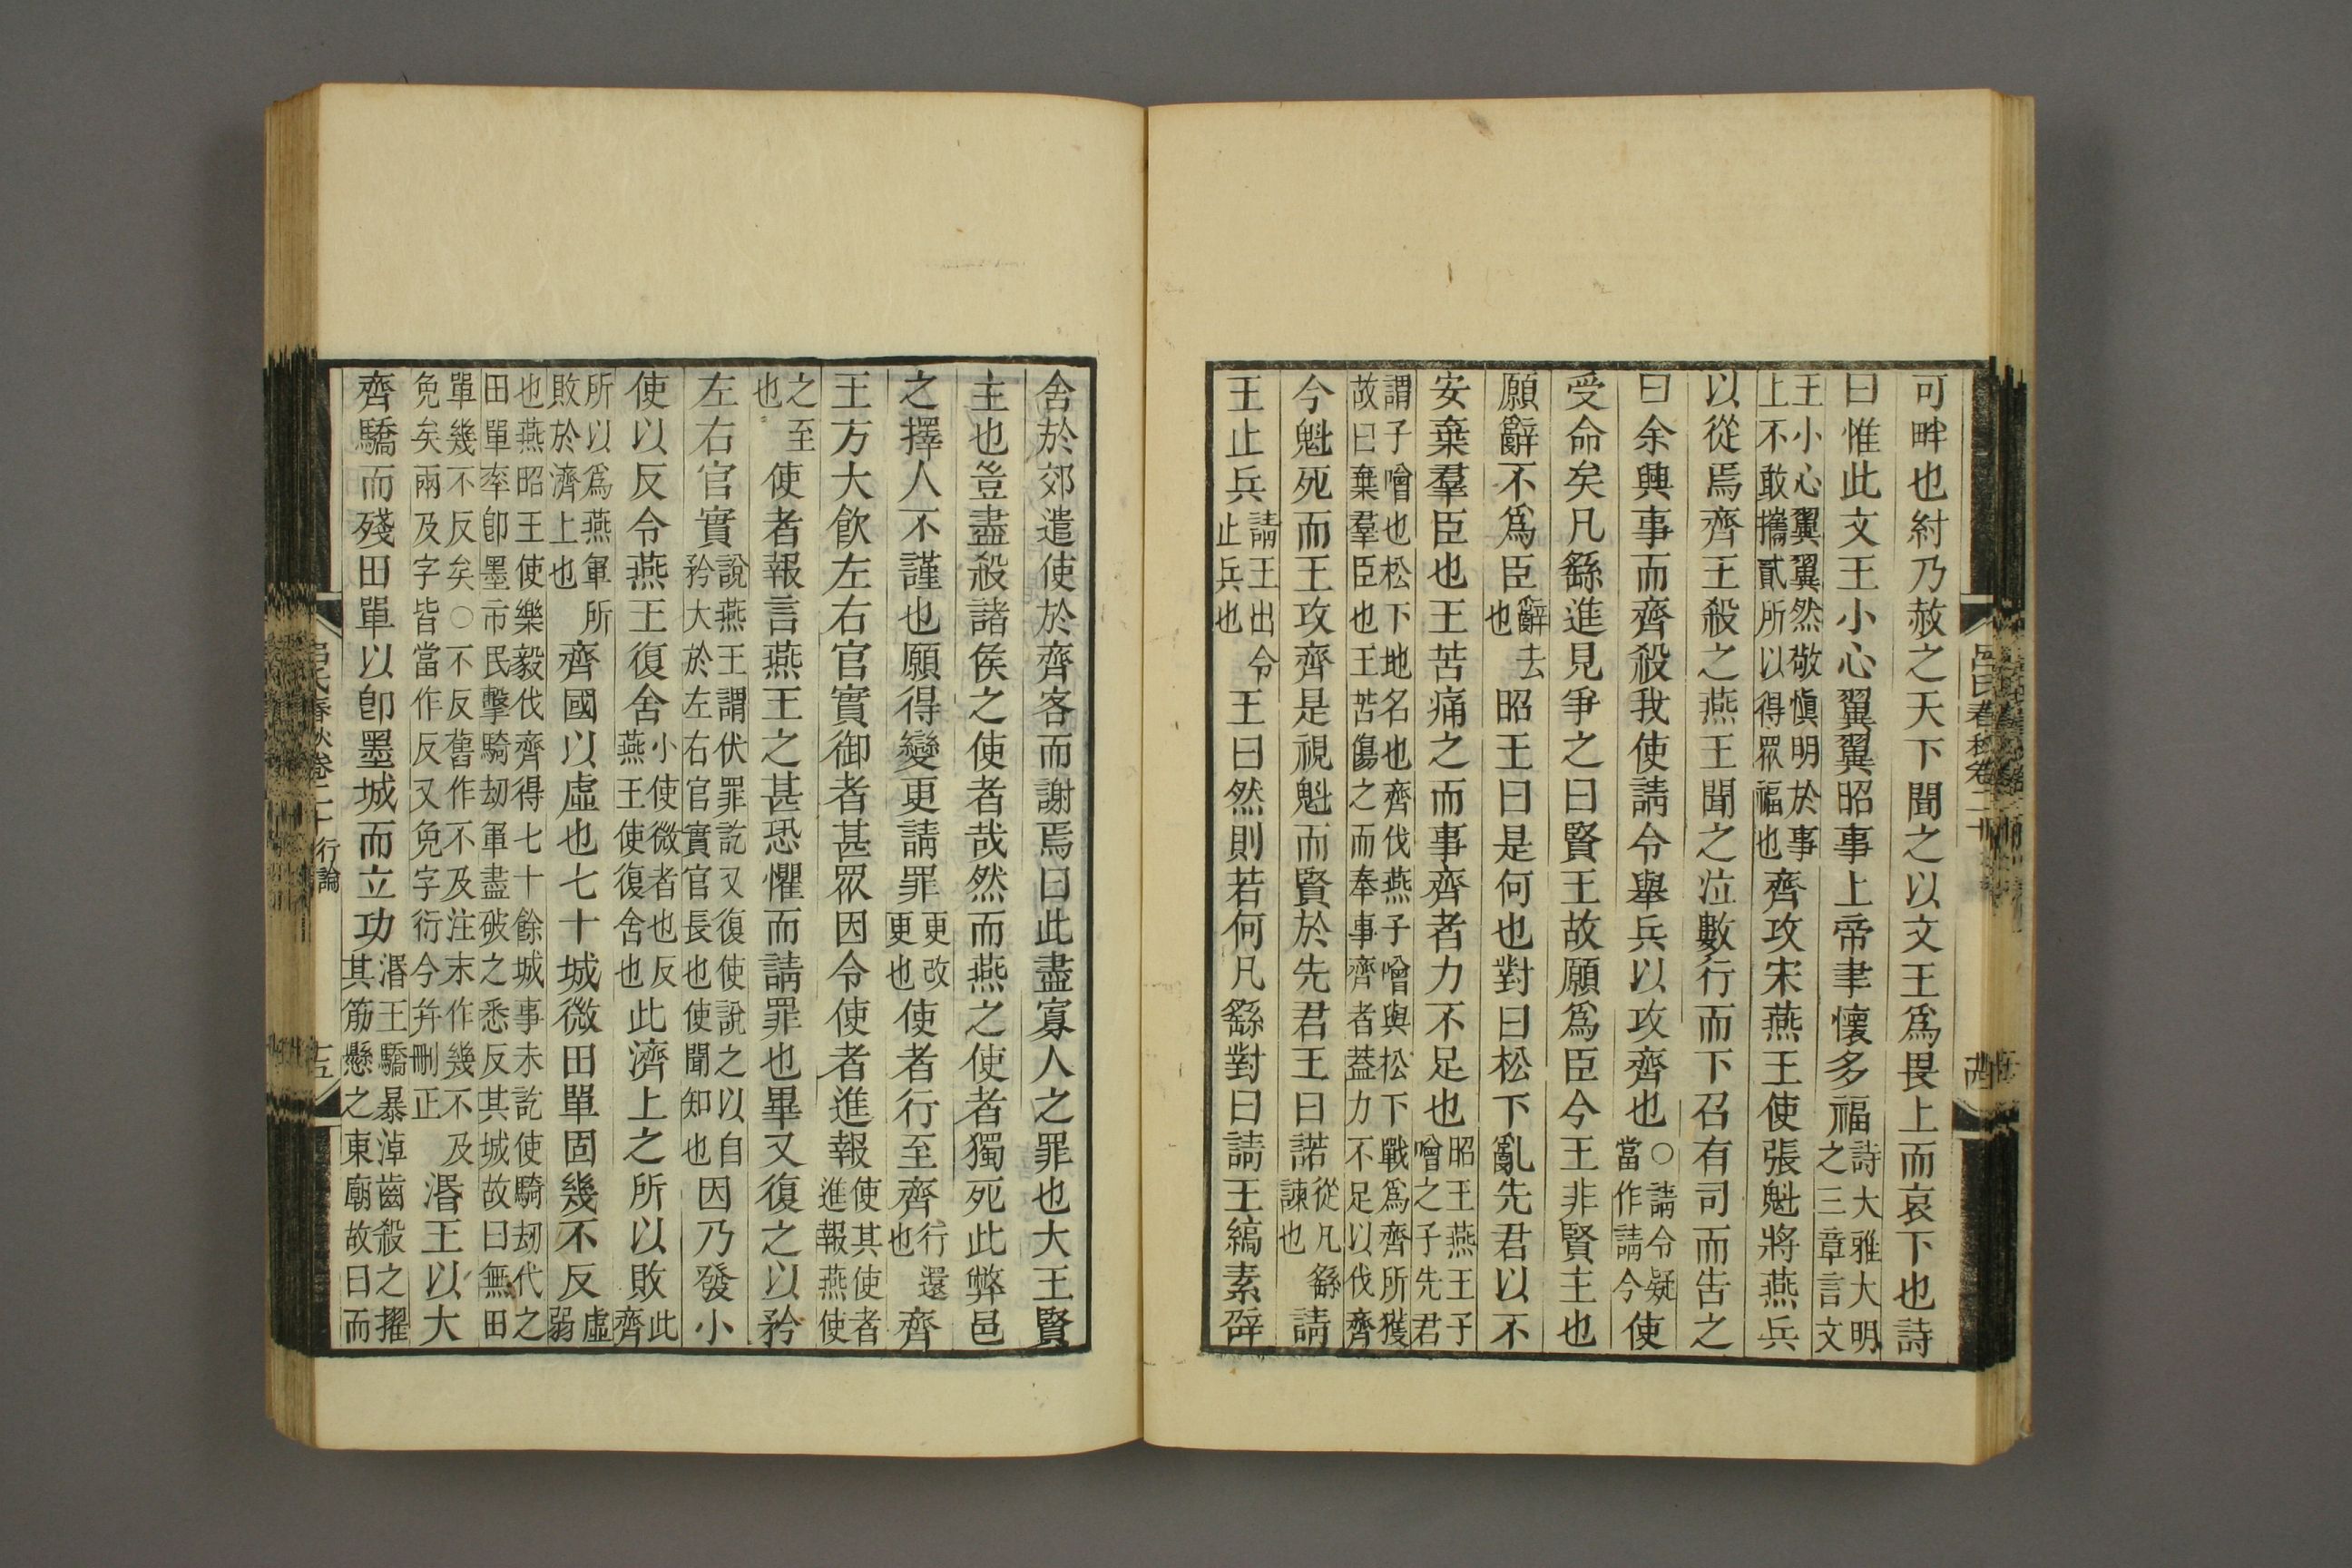 可畔也紂乃赦之天下聞之以文王爲畏上而哀下也詩
曰惟此文王小心翼翼昭事上帝聿懷多福詩大雅大明之三章言文
王小心翼翼然敬愼明於事上不敢攜貳所以得眾福也齊攻宋燕王使張魁將燕兵
以從焉齊王殺之燕王聞之泣數行而下召有司而告之
曰余興事而齊殺我使請令舉兵以攻齊也○請令疑當作請今使
受命矣凡繇進見爭之曰賢王故願爲臣今王非賢主也
願辭不爲臣辭去也昭王曰是何也對曰松下亂先君以不
安棄羣臣也王苦痛之而事齊者力不足也昭王燕王子噲之子先君
謂子噲也松下地名也齊伐燕子噲與松下戰爲齊所獲故曰棄羣臣也王苦傷之而奉事齊者葢力不足以伐齊
今魁死而王攻齊是視魁而賢於先君王曰諾從凡繇諫也請
王止兵請王出令止兵也王曰然則若何凡繇對曰請王縞素辟
舍於郊遣使於齊客而謝焉曰此盡寡人之罪也大王賢
主也豈盡殺諸侯之使者哉然而燕之使者獨死此弊邑
之擇人不謹也願得變更請罪更改更也使者行至齊行還也齊
王方大飲左右官實御者甚眾因令使者進報使其使者進報燕使
之至也使者報言燕王之甚恐懼而請罪也畢又復之以矜
左右官實說燕王謂伏罪訖又復使說之以自矜大於左右官實官長也使聞知也因乃發小
使以反令燕王復舍小使微者也反燕王使復舍也此濟上之所以敗此齊
所以爲燕軍所敗於濟上也齊國以虛也七十城微田單固幾不反虛弱
也燕昭王使樂毅伐齊得七十餘城事未訖使騎劫代之田單率卽墨市民擊騎劫軍盡破之悉反其城故曰無田
單幾不反矣○不反舊作不及注末作幾不及免矣兩及字皆當作反又免字衍今幷刪正湣王以大
齊驕而殘田單以卽墨城而立功湣王驕暴淖齒殺之擢其筋懸之東廟故曰而
呂氏春秋卷二十 行論